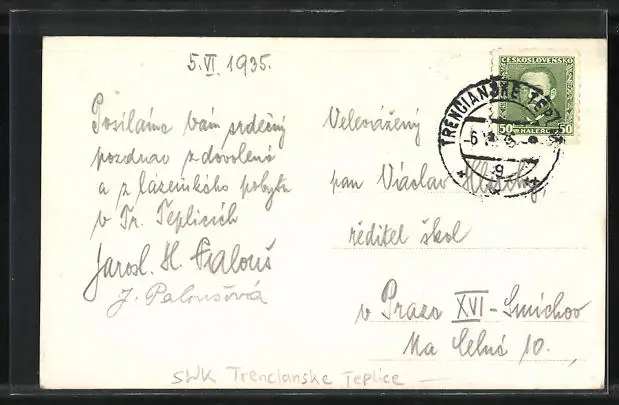 5.VI.1935.
Posíláme Vám srdečný
pozdrav z dovolené
a z lázeňského pobytu
v Tr. Teplicích
Jarosl. H. Palouš
J. Paloušová
ČESKOSLOVENSKO
50 HALÉŘŮ 50
TRENČIANSKE TEPLICE
9
Velevážený
pan Václav
ředitel škol
v Praze XVI-Smíchov
Na Celné 10.
SWK Trencianske Teplice